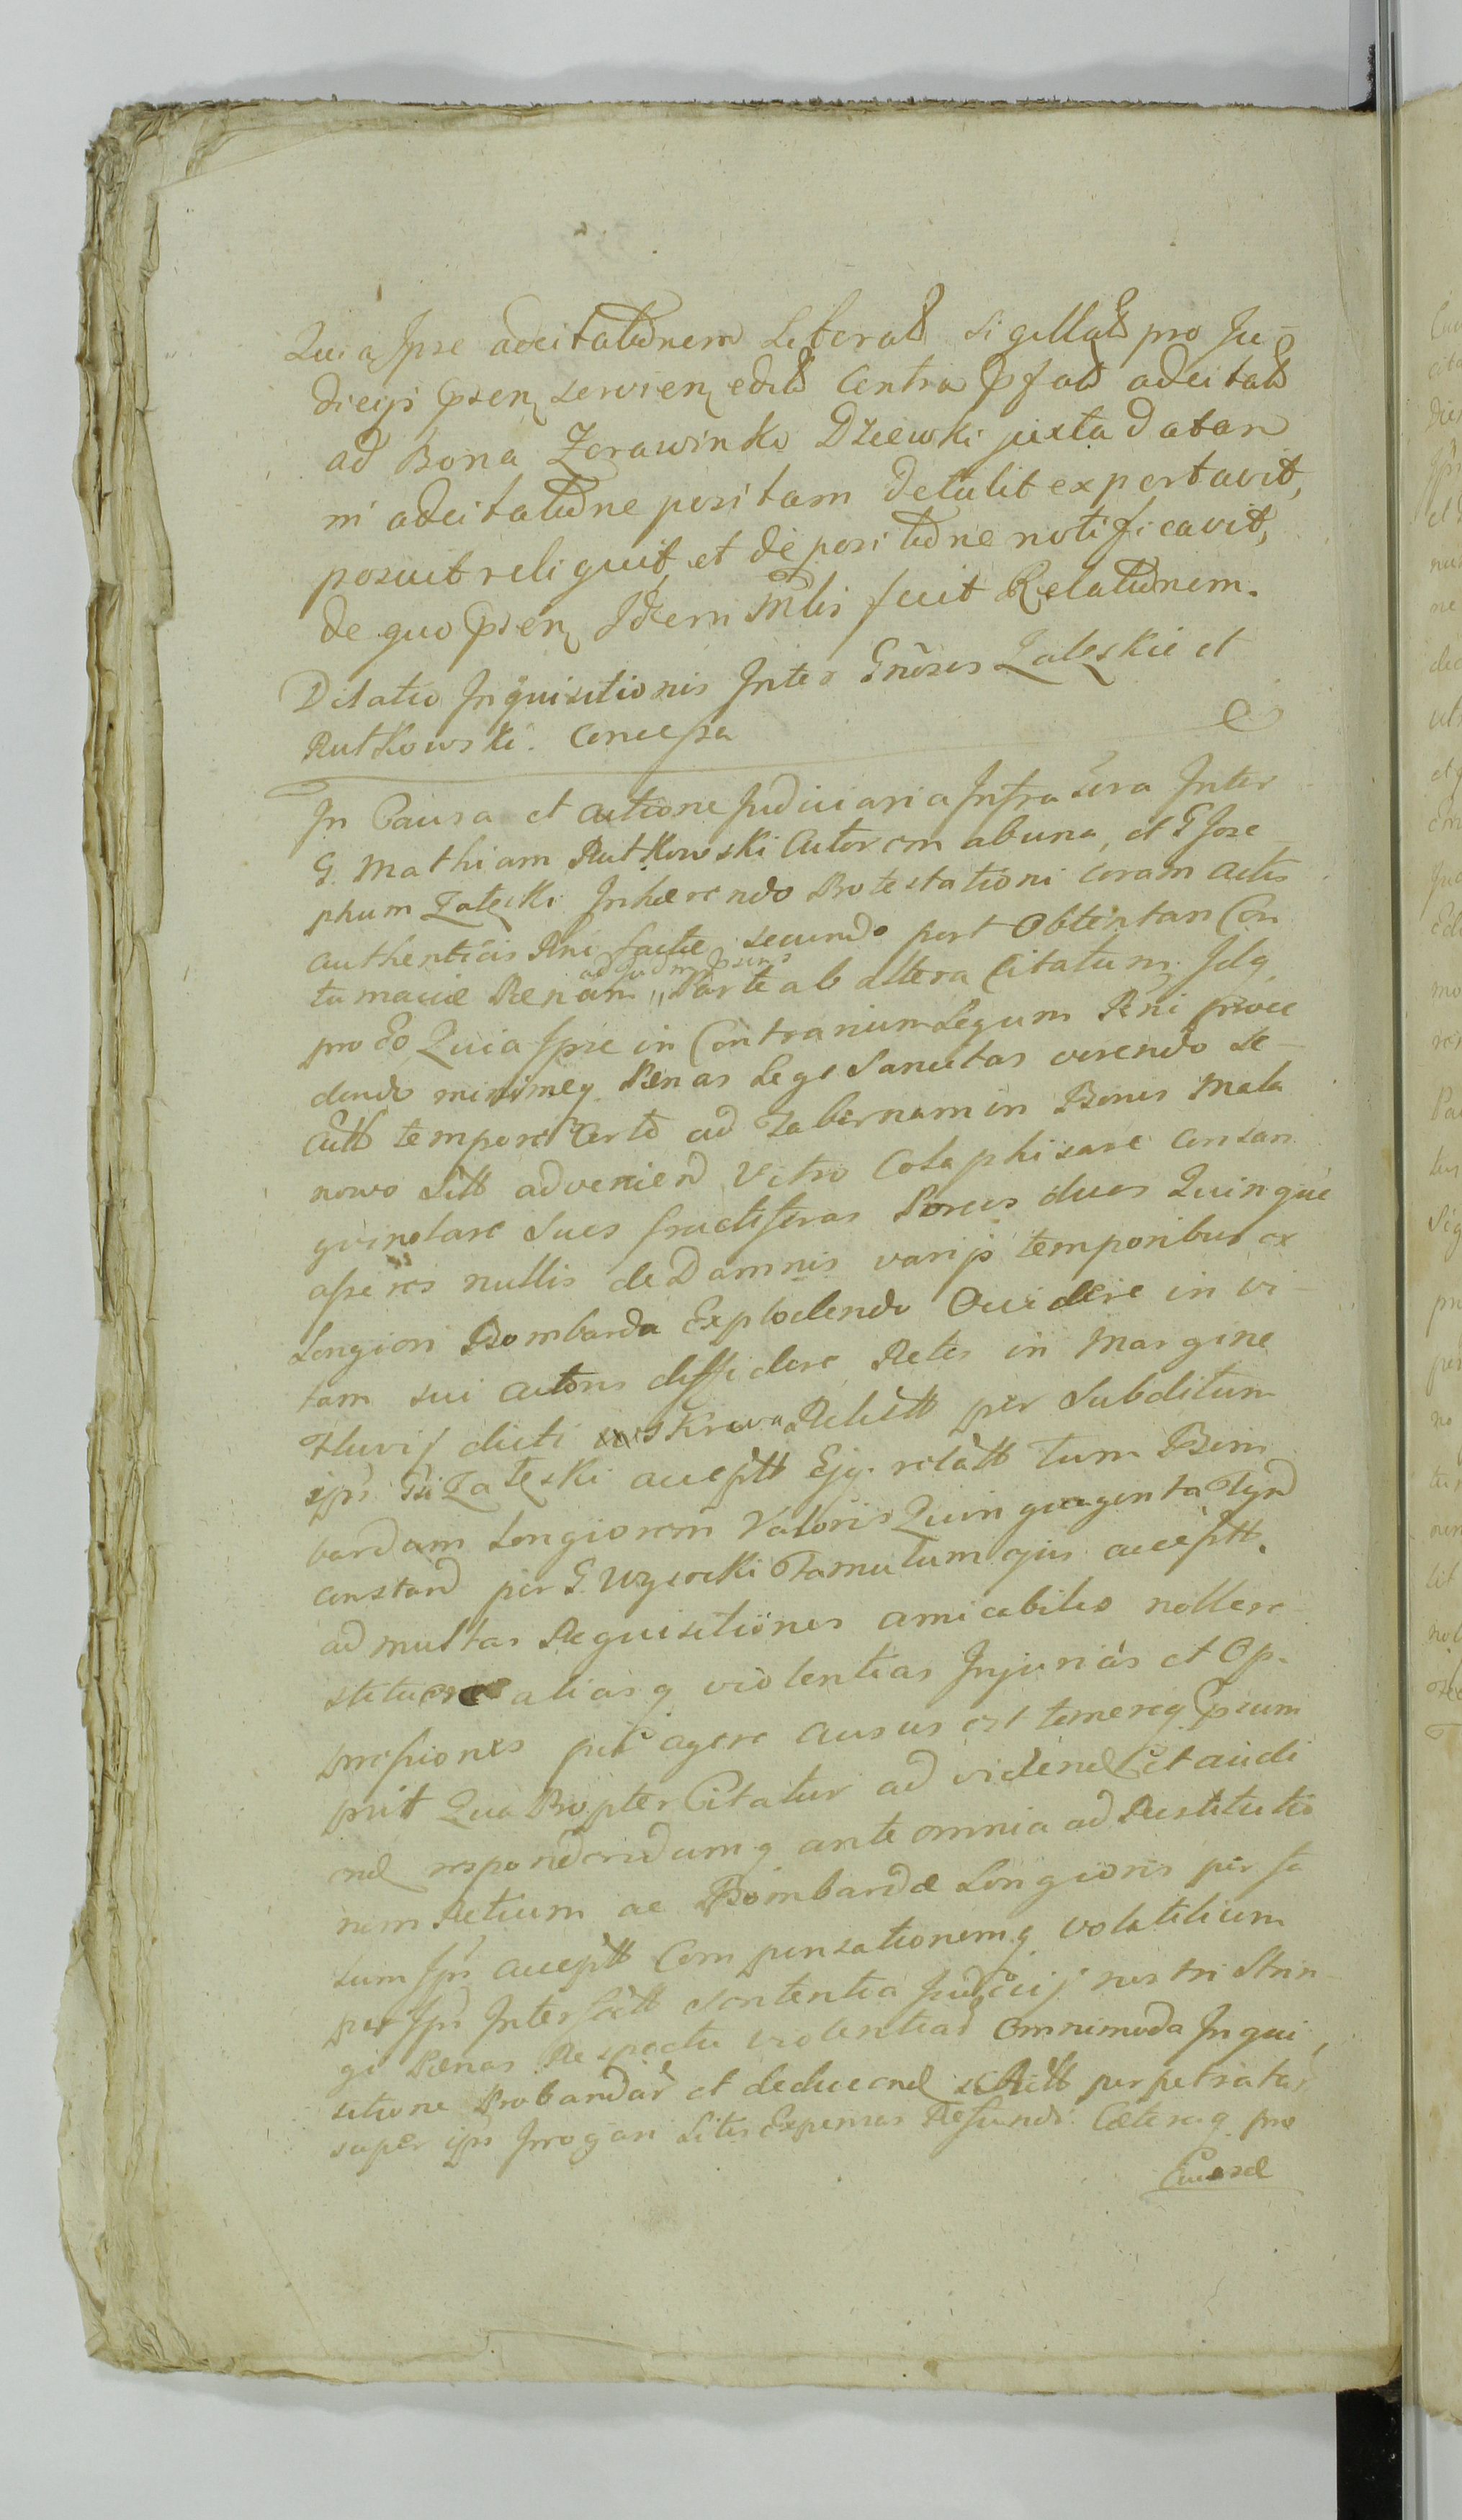 Quia Ipse adcitatdnem Literald Sigillatd pro Ju-
dicijs Psen servien edtd Contra Pfatd adcitatd
ad Bona Zorawinko Dżiewki juxta datam
in adcitatdne positam detulit exportavit,
posuit reliquit, et de positdne notificavit,
de quo Psen Idem Mlis fecit Relatdnem.
Dilatio Inquisitionis Inter Gnosos Zaleskie et
Rutkowski. Concessa
In Causa et actione Judiciaria Infra scra Inter
G. Mathiam Rutkowski Actorem ab una, et G Jose
phum Zaleski Inhærendo Protestationi coram actis
authenticis Rni factæ secundo post Obtentan Con
tumaciæ Pænam ad Judm Psens Parte ab altera Citatum Idq
pro Eo Quia Ipse in Contrarium Legum Rni proce
dendo minimeq Pænas Lege Sancitas verendo se-
cutt tempore Certo ad Tabernam in Bonis Mala
nowo sitt adveniend Vitro Colaphisare Consan
gvinolare Sues fructiferas Porcos duos Quinque
asseres nullis de Damnis varijs temporibus ex
Longiori Bombarda Explodendo Occidere in vi-
tam sui actoris diffidere Retes in Margine
Fluvij dicti Skrwa Relictt per Subditum
ipsi Gsi Zaleski acceptt Ejq. relàtt tum Bom
bardam Longiorem Valoris Quinquaginta Tynf
constand per G. Wysocki Famulum ejus acceptt.
ad multas Requisitiones amicabiles nolle re
stituere aliasq violentias Injurias et Op-
pressiones per agere ausus est temereq Psum
psit Qua Propter Citatur ad videnđ et audi
enđ respondendumq ante omnia ad Restitutio
nem Retium ac Bombardæ Longioris per fa
lum Ipsi acceptt Compensationemq volatilium
per Ipsi Interfectt Sententia Judicij nostri Strin
gi Pænas Respectu violentiad Omnimoda Inqui
sitione Probandar et deducend perpetratas
super ipsi Irrogari Litis Expensas Refundi Cæteraq pro
Causæ